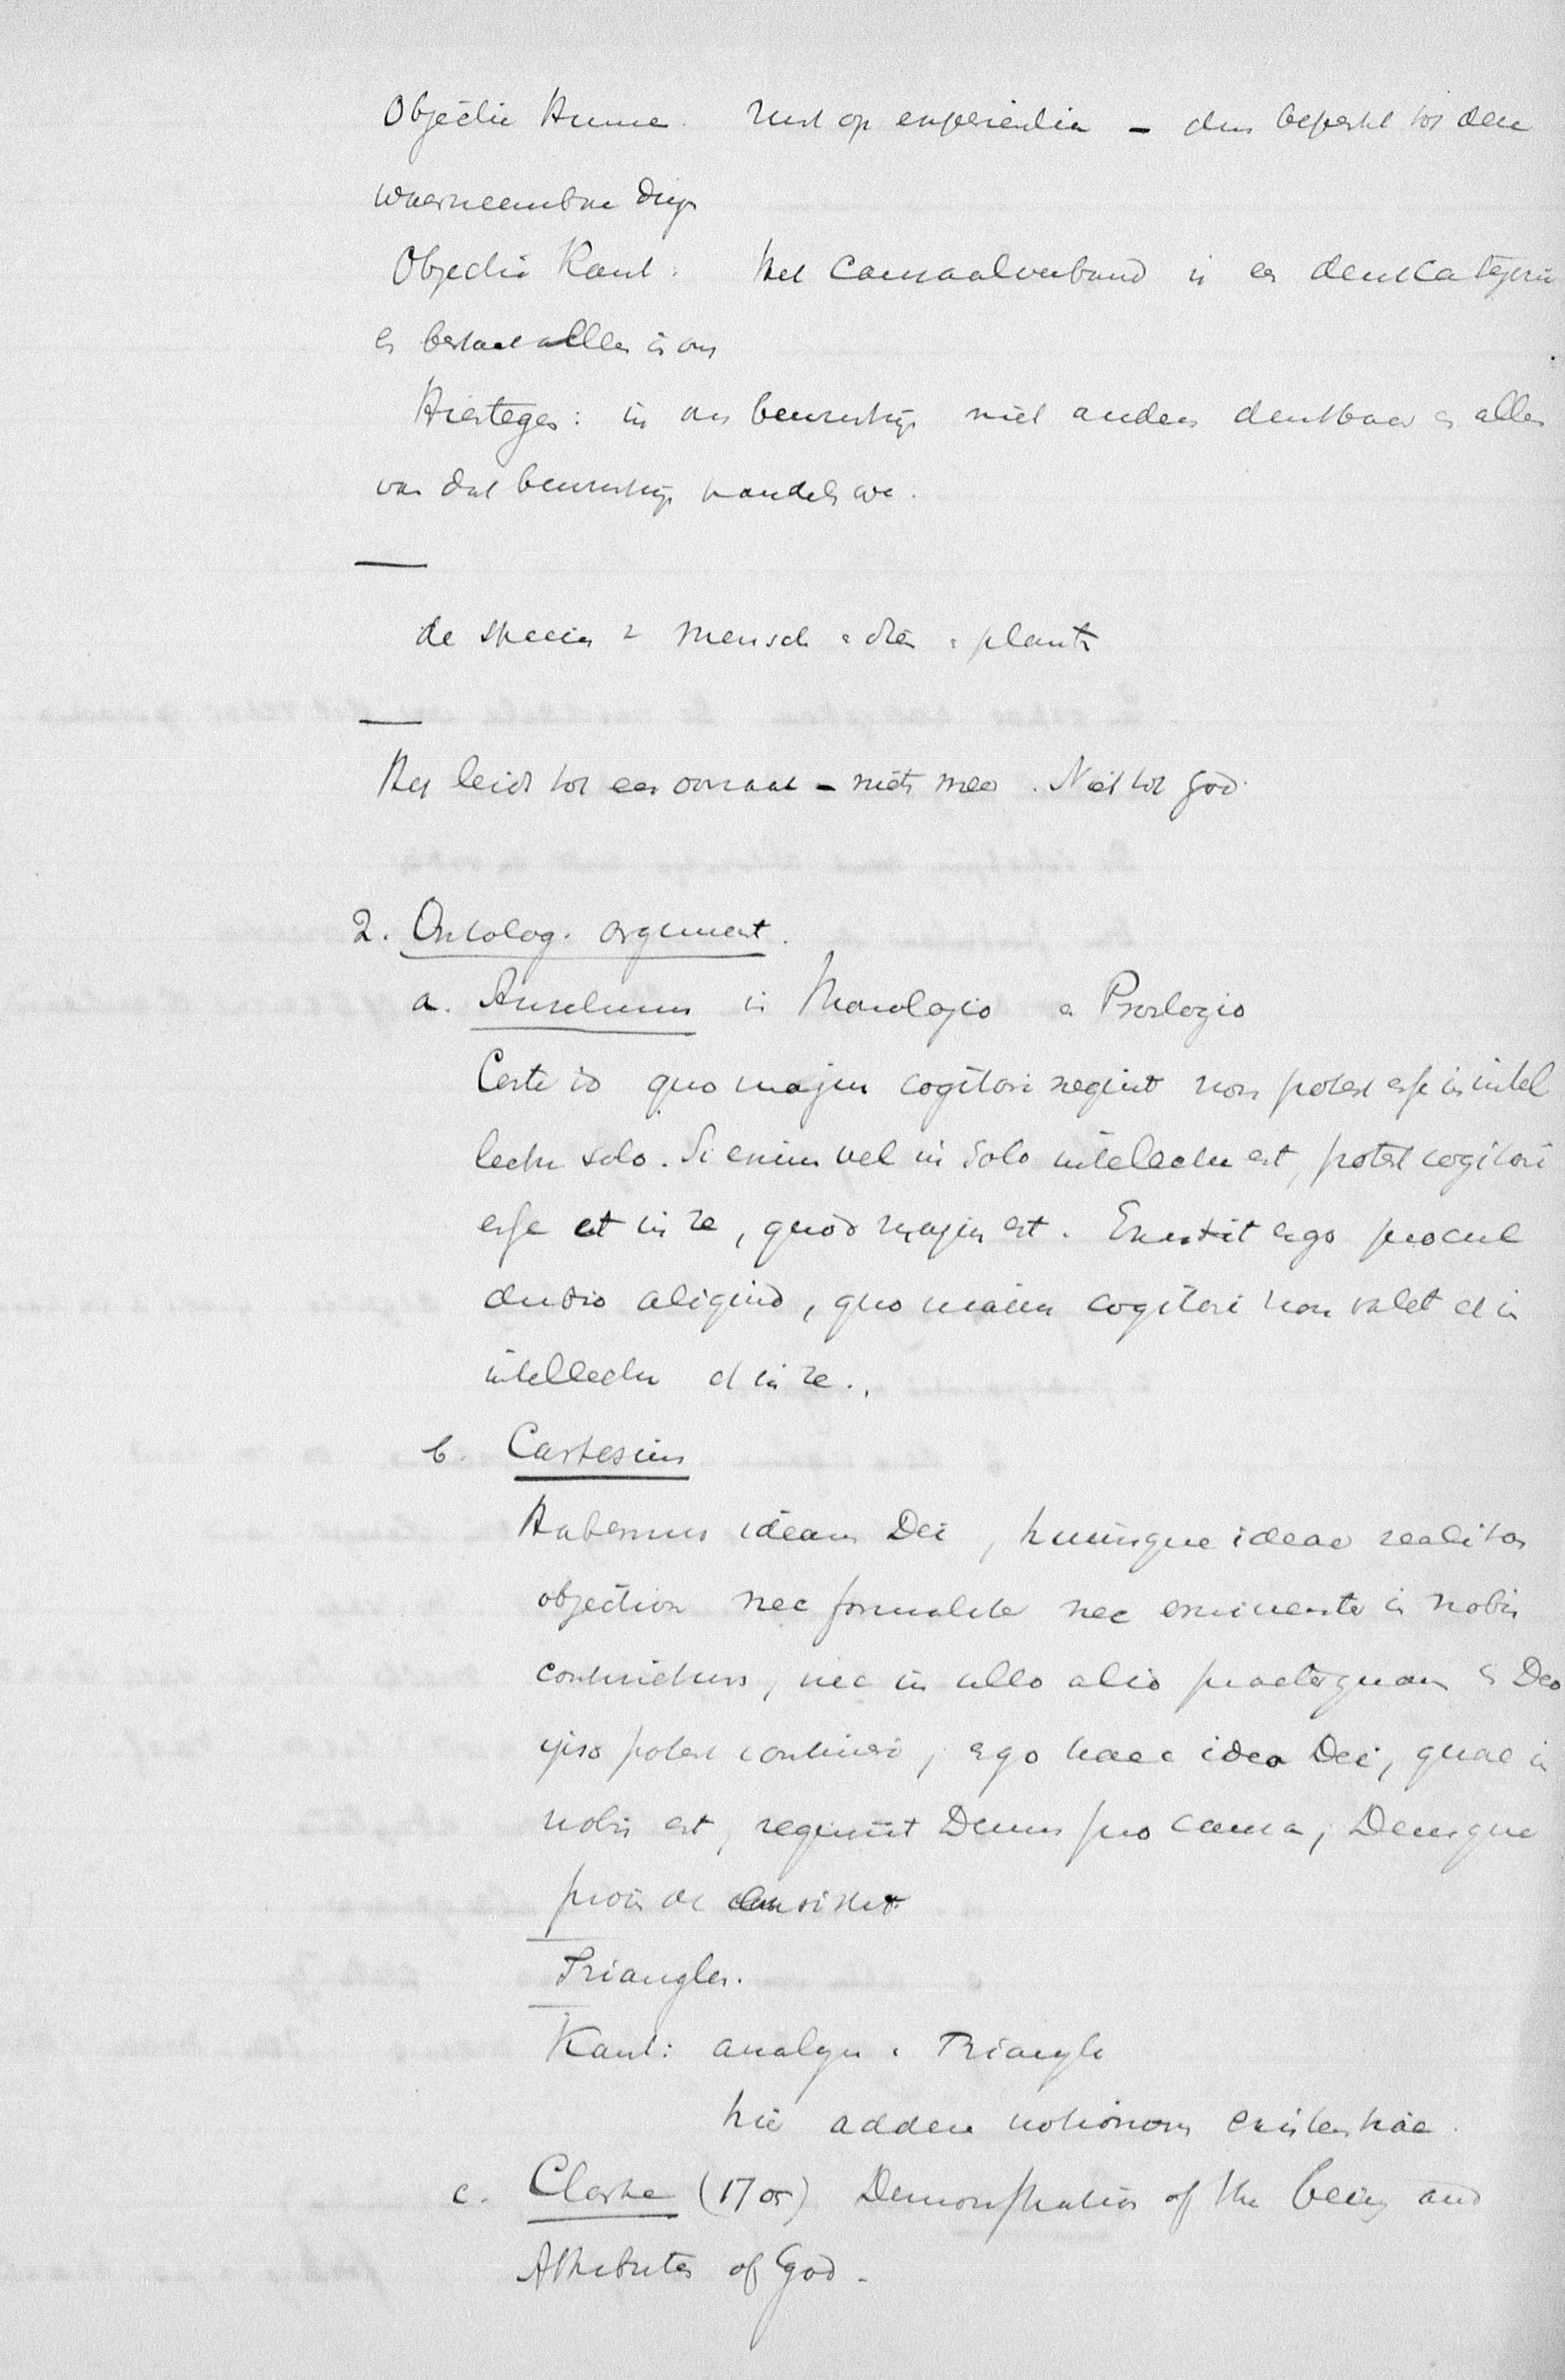 Objectie Hume. rust op experientia – dus beperkt tot deze
waarneembare dingen
Objectie Kant: Het Causaalverband is een denkcategorie
en bestaat alleen in ons
Hiertegen: in ons bewustzijn niet anders denkbaar en alleen
van dat bewustzijn handelen we.
de species = mensch = dier = plant
Het leidt tot een oorzaak – niets meer. Niet tot God.
2. Ontolog. argument.
a. Anselmus in Monologio en Proslogio
Certe id quo majus cogitari nequit non potest esse in intel
lectu solo. Si enim vel in solo intellectu est, potest cogitari
esse et in re, quod majus est. Existit ergo procul
dubio aliquid, quo maius cogitari non valet et in
intellectu et in re.
b. Cartesius
Habemus ideam Dei, hujusque ideae realitas
objectiva nec formaliter nec eminenter in nobis
continetur, nec in ullo alio praeterquam in Deo
ipso potest contineri, ergo haec idea Dei, quae in
nobis est, requirit Deum pro causa, Deusque
proinde existit
Triangles.
Kant: analyse Triangle
hic addere notionem existentiae.
c. Clarke (1705) Demonstration of the being and
Attributes of God.